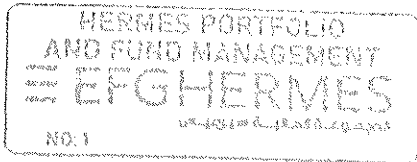 HERMES PORTFOLIO
AND FUND MANAGEMENT
EFGHERMES
NO: 1